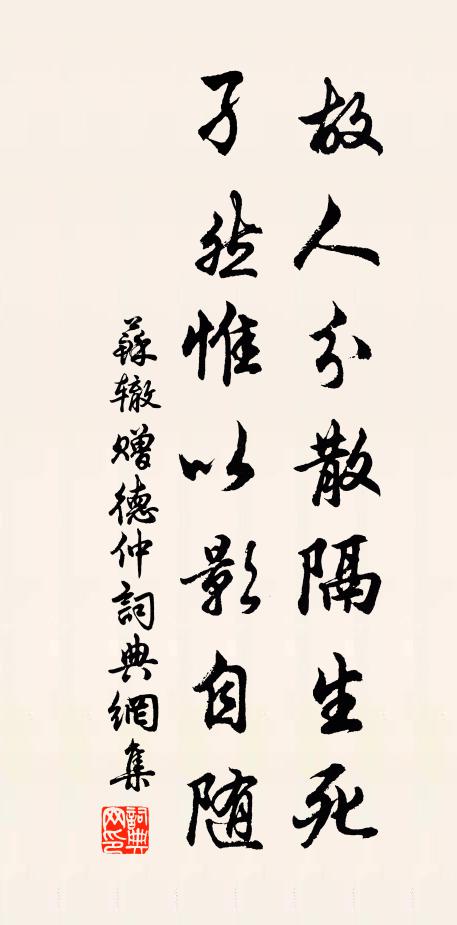 故人分散隔生死
孑然惟以影自随
蘇辙赠德仲詞典網集
詞典網印